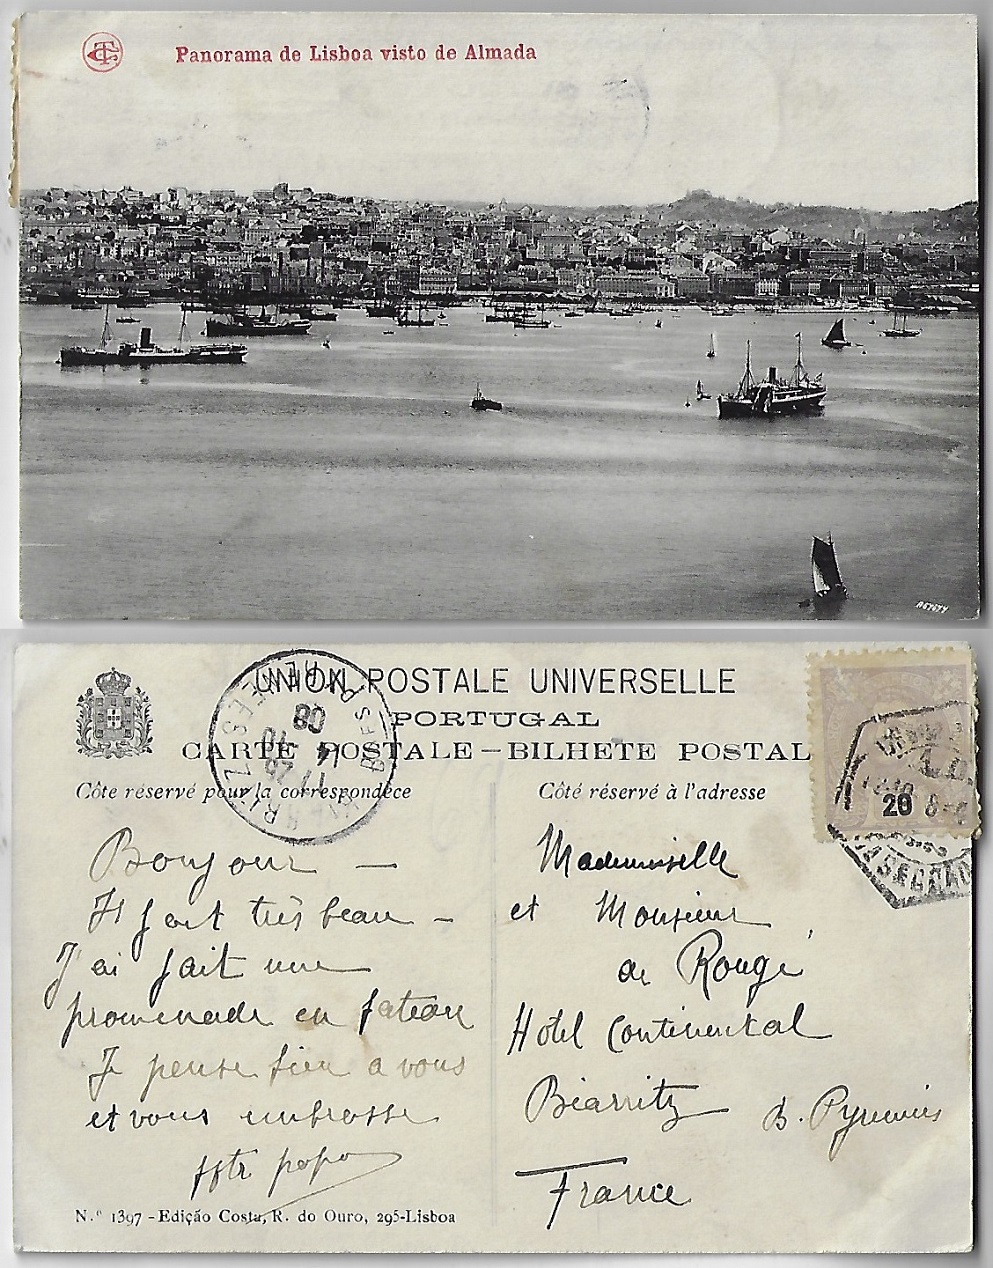 Panorama de Lisboa visto de Almada
UNION POSTALE UNIVERSELLE
PORTUGAL
CARTE POSTALE – BILHETE POSTAL
Côte réservé pour la correspondéce
Côté réservé à l'adresse
BIARRITZ
BSES PYRENEES
17 25
14 - 10
08
20
Bonjour —
Il fait très beau –
J'ai fait une
promenade en bateau
Je pense bien a vous
et vous embrasse
papa
Mademoiselle
et Monsieur
de Rougé
Hôtel Continental
Biarritz B. Pyrenées
France
N.º 1397 - Edição Costa, R. do Ouro, 295-Lisboa